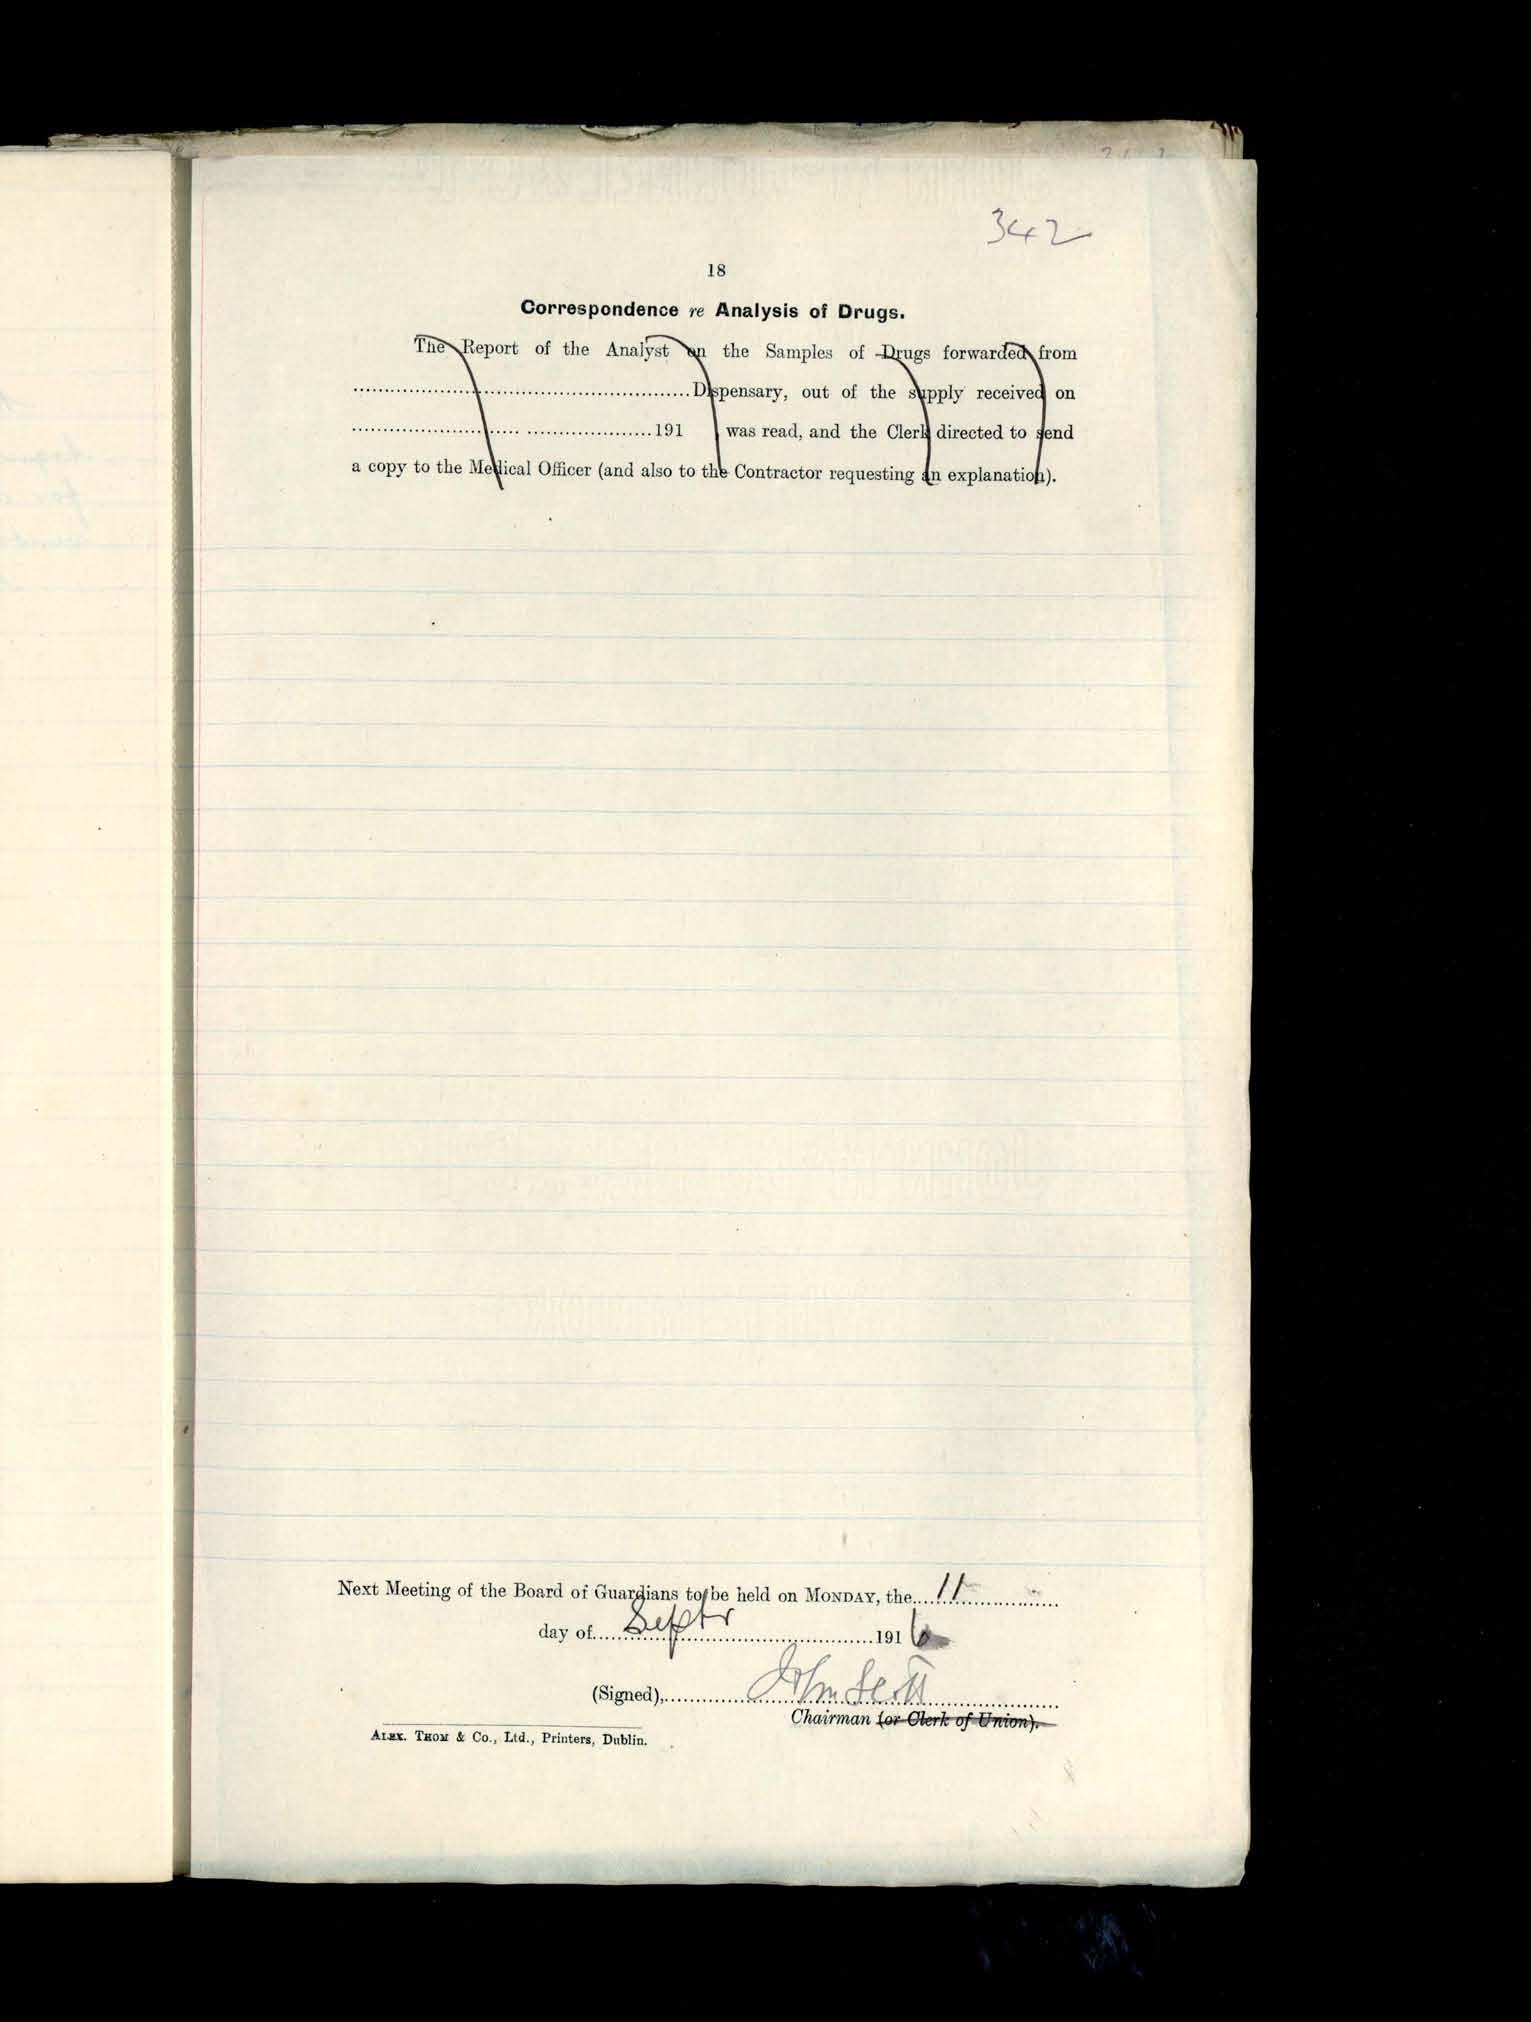 342
18
Correspondence re Analysis of Drugs.
The Report of the Analyst on the Samples of Drugs forwarded from
........................................Dispensary, out of the supply received on
........................................191 was read, and the Clerk directed to send
a copy to the Medical Officer (and also to the Contractor requesting an explanation).
Next Meeting of the Board of Guardians to be held on MONDAY, the....11....
day of....Septr....1916
(Signed),....John Scott....
Chairman (or Clerk of Union).
ALEX. THOM & Co., Ltd., Printers, Dublin.